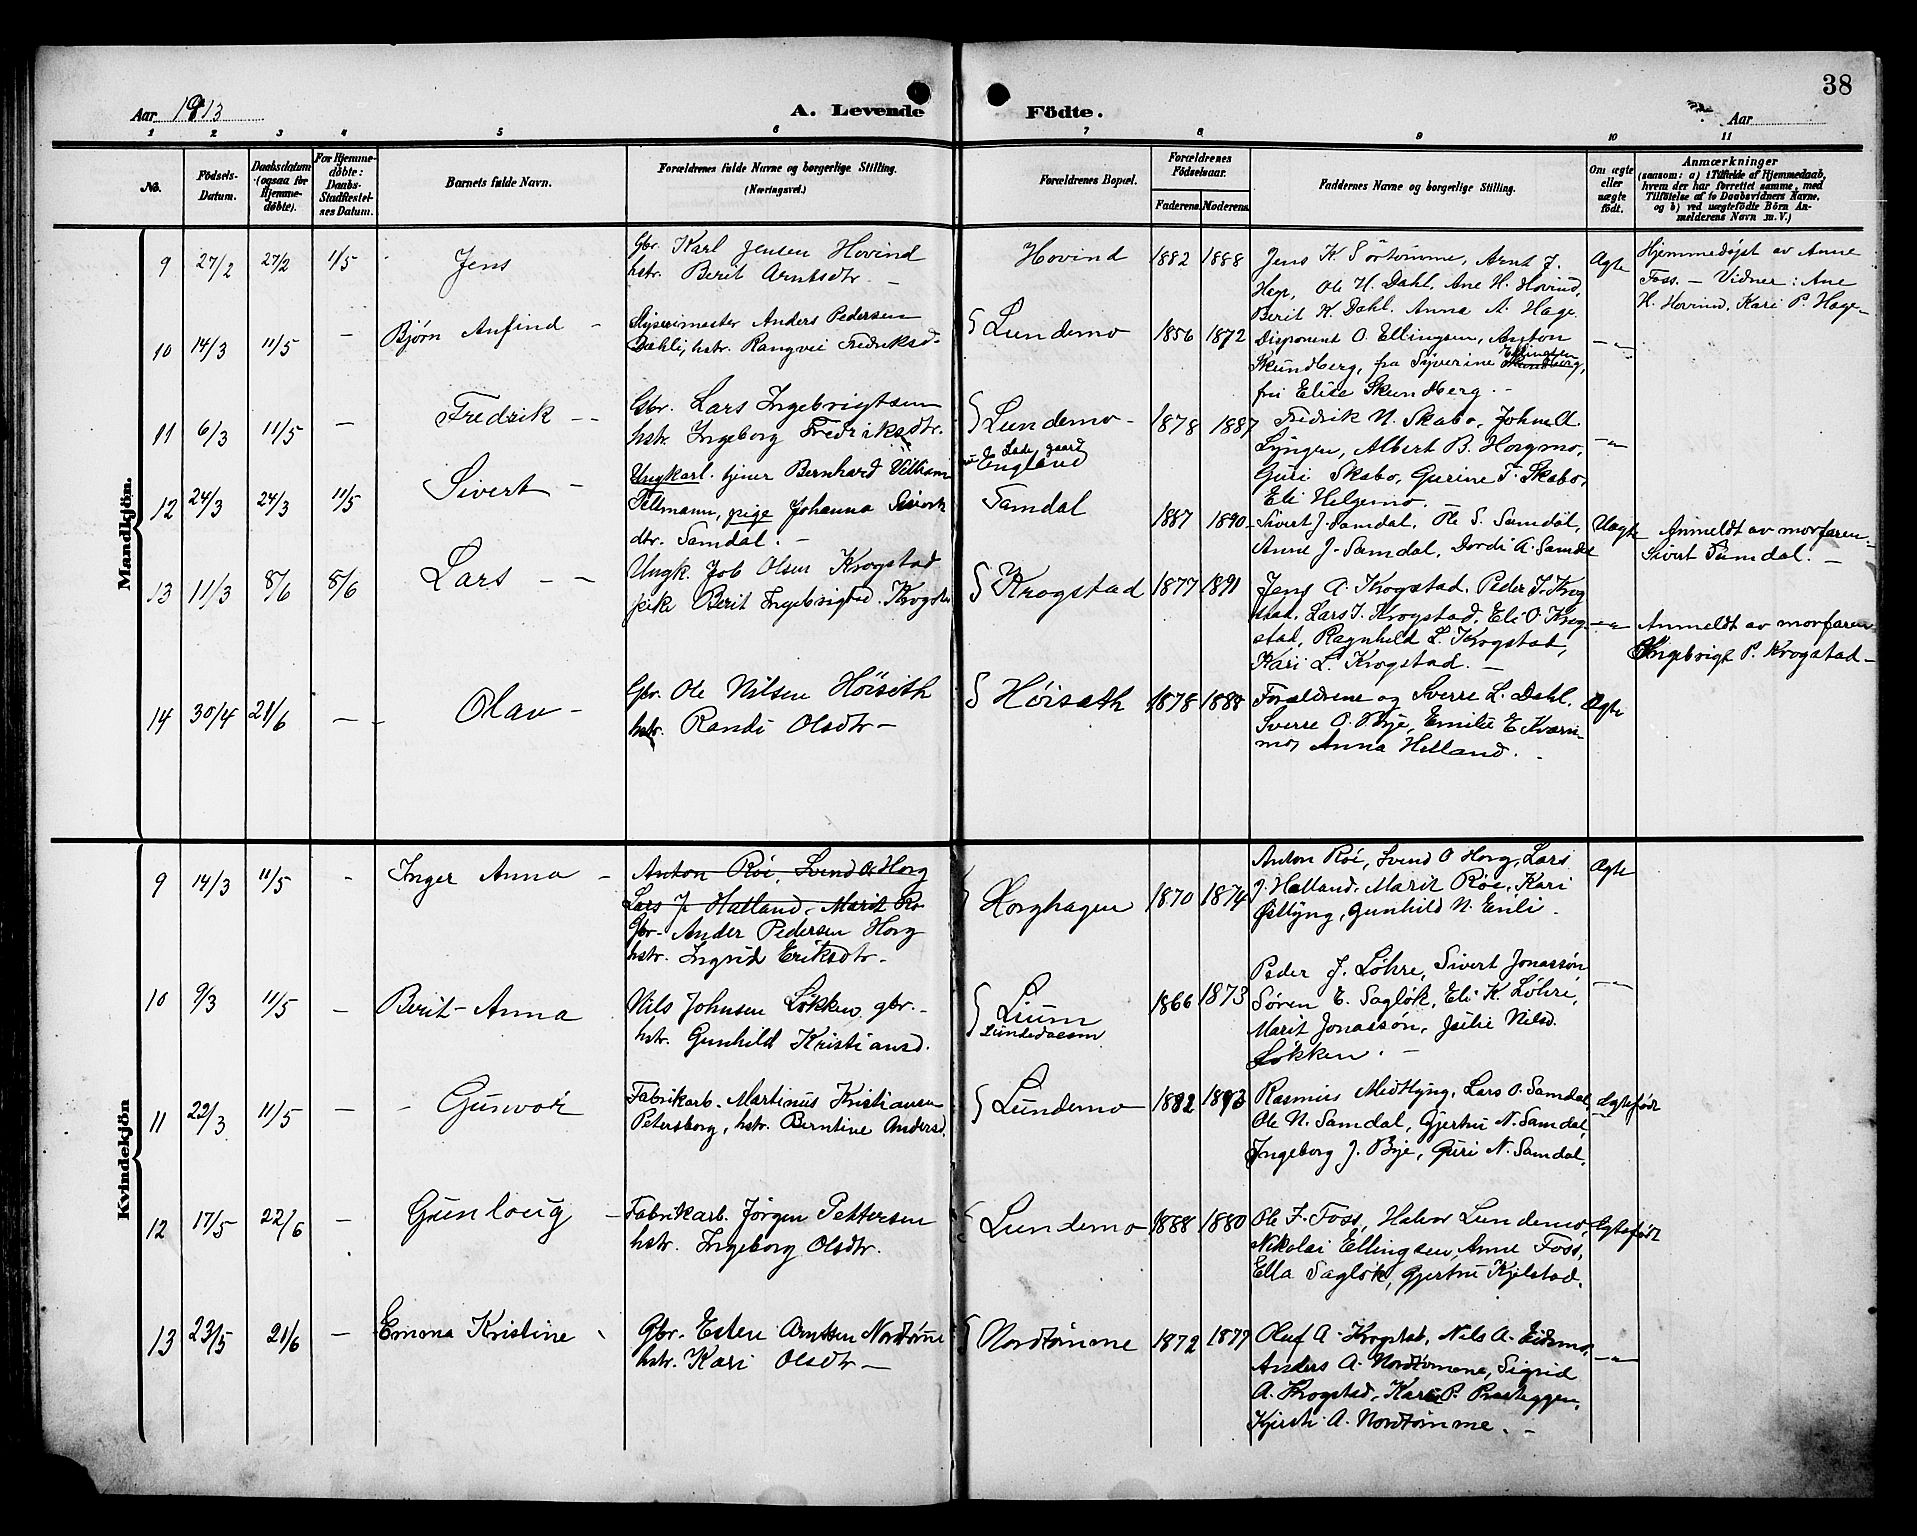 38
Aar 1913
A. Levende Födte.
Aar
1 2 3 4 5 6 7 8 9 10 11
No.
Födsels-Datum.
Daabsdatum (ogsaa for Hjemmedöbte).
For Hjemmedöbte: Daabs-Stadfæstelses Datum.
Barnets fulde Navn.
Forældrenes fulde Navne og borgerlige Stilling. (Næringsvei.)
Forældrenes Bopæl.
Forældrenes Födselsaar.
Faderens. Moderens.
Faddernes Navne og borgerlige Stilling.
Om ægte eller uægte födt.
Anmærkninger
(saasom: a) i Tilfælde af Hjemmedaab, hvem der har forrettet samme, med Tilföielse af to Daabsvidners Navne, og b) ved uægtefödte Börn Anmelderens Navn m. V.)
Mandkjön.
9 27/2 27/2 1/5 Jens
Gbr. Karl Jensen Hovind
hstr. Berit Arntsdtr. —
Hovind 1882 1888
Jens K. Sörtömme, Arnt J.
Hage, Ole H. Dahl, Ane H. Hovind,
Berit K. Dahl, Anna A. Hage.
Ægte
Hjemmedøpt av Anne
Foss. — Vidner: Ane
H. Hovind, Kari P. Hage —
10 14/3 11/5 — Bjørn Anfind —
Slyserimester Anders Pedersen
Dæhli, hstr. Rangvei Fredriksd.
Lundemo 1856 1872
Disponent O. Ellingsen, Anton
Skundberg, fru Syverine Ellingsen Skundberg,
fru Elise Skundberg. —
—"—
11 6/3 11/5 — Fredrik —
Gbr. Lars Ingebrigtsen
hstr. Ingeborg Fredriksdtr.
Lundemo — 1878 1887
Fredrik N. Skabo, John Ol.
Lyngen, Albert B. Horgmo,
Guri Skabo, Gurine F. Skabo,
Eli Helgemo. —
—"—
12 24/3 24/3 11/5 Sivert —
Ungkarl. tjener Bernhard Villiam
Tillmann, pige Johanna Siverts
dtr. Samdal. —
Lade gaard
England
Samdal 1887 1890
Sivert J. Samdal, Ole S. Samdal,
Anne J. Samdal, Dordi A. Samdal
Uægte
Anmeldt av morfaren
Sivert Samdal. —
13 11/3 8/6 8/6 Lars — —
Ungk. Job Olsen Krogstad
pike Berit Ingebrigtsd. Krogsta
Krogstad 1877 1891
Jens A. Krogstad, Peder J. Krog
stad, Lars J. Krogstad, Eli O. Krog-
stad, Ragnhild L. Krogstad,
Kari L. Krogstad. —
—"—
Anmeldt av morfaren
Ingebrigt P. Krogstad —
14 30/4 21/6 — Olav —
Gbr. Ole Nilsen Höiseth
hstr. Randi Olsdtr —
Höiseth 1878 1888
Forældrene og Sverre L. Dahl.
Sverre O. Bye, Emilie E. Kværn-
mo, Anna Helland. —
Ægte
Kvindekjön
9 14/3 11/5 - Inger Anna —
Anton Røe, Svend O Horg
Lars J. Hatland, Marit Rø
Gbr. Ander Pedersen Horg
hstr. Ingrid Eriksdtr. —
Horghagen 1870 1874
Anton Røe, Svend O Horg, Lars
J. Hatland, Marit Røe, Kari
Østlyng, Gunhild N. Enli.
Ægte
10 9/3 11/5 — Berit Anna
Nils Johnsen Løkken, gbr. —
hstr. Gunhild Kristiansd.
Lium
1866 1873
Peder J. Løhre, Sivert Jonassøn
Søren E. Sagløk, Eli K. Løhre,
Marit Jonassøn, Jsilie Nilsd.
Løkken. —
—"—
11 22/3 11/5 — Gunvor
Fabrikarb. Martinus Kristiansen
Petersborg, hstr. Berntine Andersd.
Lundemo 1882 1893
Rasmus Midtlyng, Lars O. Samdal,
Ole N. Samdal, Gjertru N. Samdal,
Ingeborg J. Bye, Guri N. Samdal,
Ægtefødt
12 17/5 22/6 — Gunloug —
Fabrikarb. Jørgen Pettersen
hstr. Ingeborg Olsdtr.
Lundemo 1888 1880
Ole F. Foss, Halvor Lundemo,
Nikolai Ellingsen, Anne Foss,
Ella Sagløk, Gjertru Kjelstad.
Ægtefødt
13 23/5 21/6 — Emma Kristine
Gbr. Esten Arntsen Nordtømme
hstr. Kari Olsdtr —
Nordtømme 1872 1877
Oluf A. Krogstad, Nils A. Eidsmo,
Anders A. Nordtømme, Sigrid
A. Krogstad, Kari P. Presteggen,
Kjersti A. Nordtømme. —
—"—